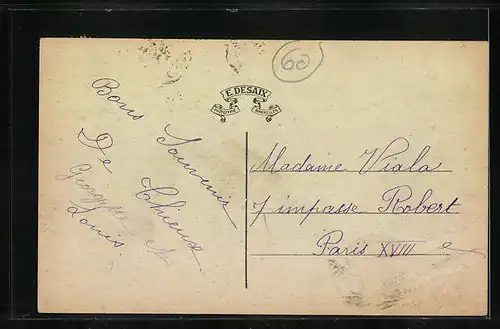 60
E. DESAIX
Bons Souvenir
De Thieux
Georgette
Louis.
Madame Viala
7 impasse Robert
Paris XVIII e